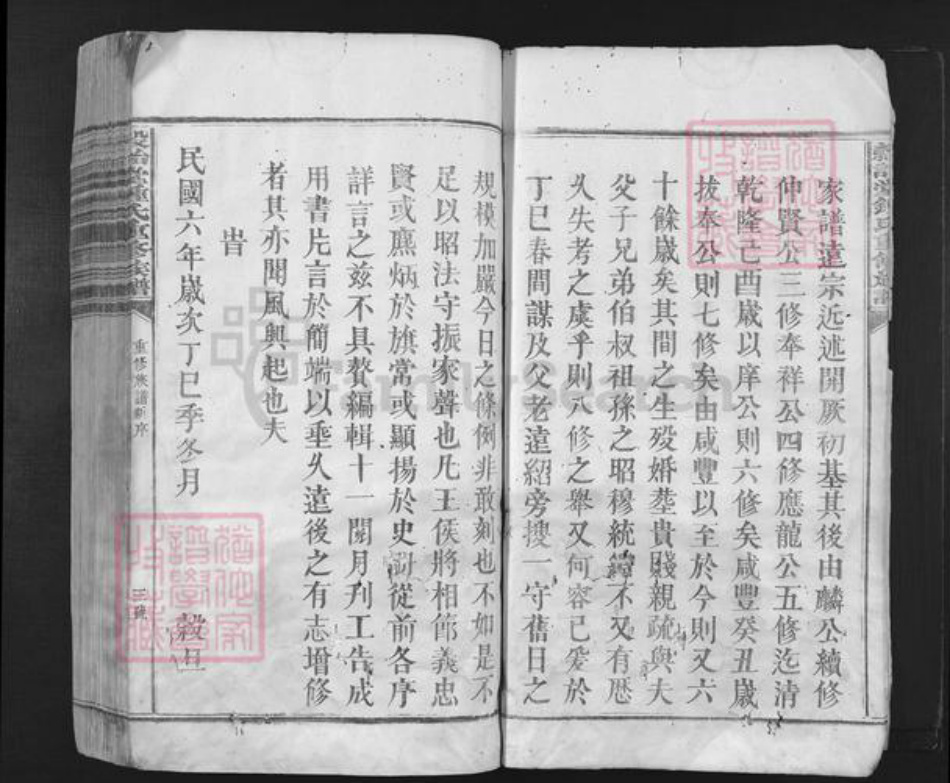 家譜遠宗近述開厥初基其後由麟公續修
仲賢公三修奉祥公四修應龍公五修迄清
乾隆己酉歲以庠公則六修矣咸豐癸丑歲
拔奉公則七修矣由咸豐以至於今則又六
十餘歲矣其間之生歿婚塟貴賤親疏與夫
父子兄弟伯叔祖孫之昭穆統緒不又有歷
乆失考之虞乎則八修之舉又何容已爰於
丁巳春間謀及父老遠紹旁搜一守舊日之
規模加嚴今日之條例非敢刻也不如是不
足以昭法守振家聲也凡王侯將相節義忠
賢或麃炳於旗常或顯揚於史冊從前各序
詳言之兹不具贅編輯十一閱月刋工告成
用書片言於簡端以埀乆遠後之有志增修
者其亦聞風興起也夫
旹
民國六年歲次丁巳季冬月 榖旦
重修族譜新序
FamilySearch